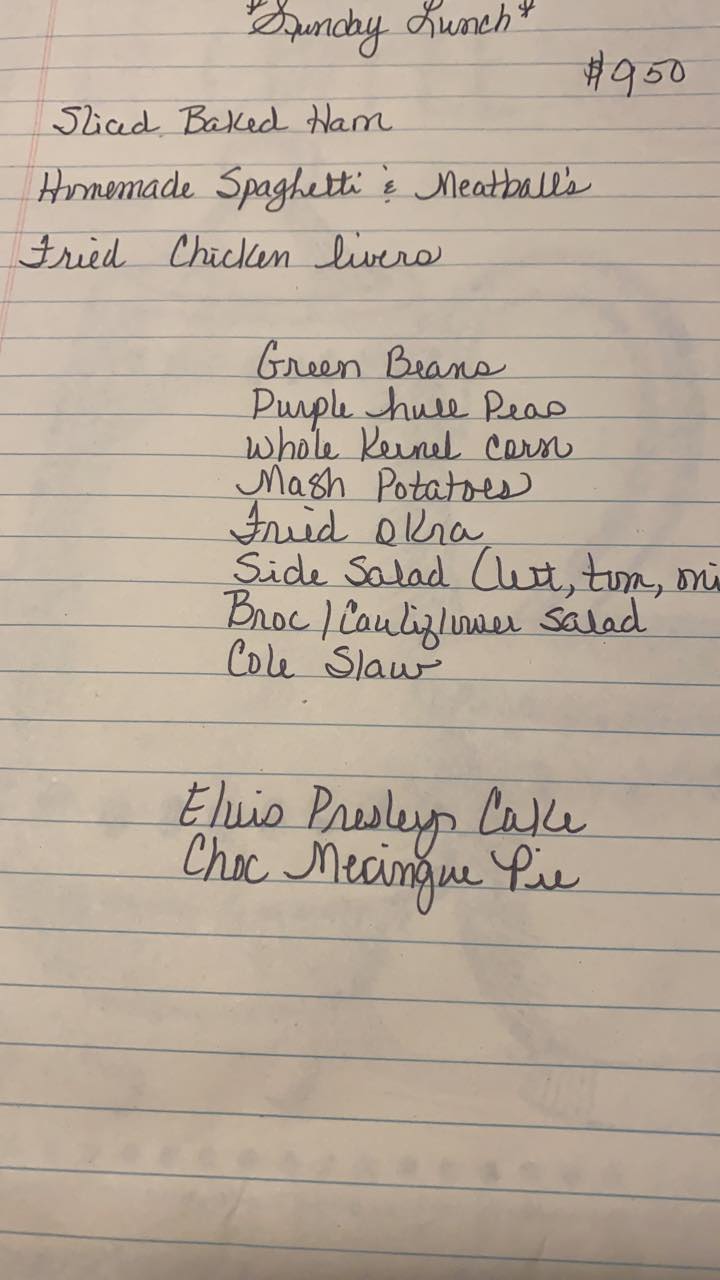 *Sunday Lunch*
$950
Sliced Baked Ham
Homemade Spaghetti & Meatball's
Fried Chicken livers
Green Beans
Purple hull Peas
Whole Kernel corn
Mash Potatoes
Fried Okra
Side Salad (let, tom, oni
Broc/Cauliflower salad
Cole Slaw
Elvis Presley Cake
Choc Meringue Pie